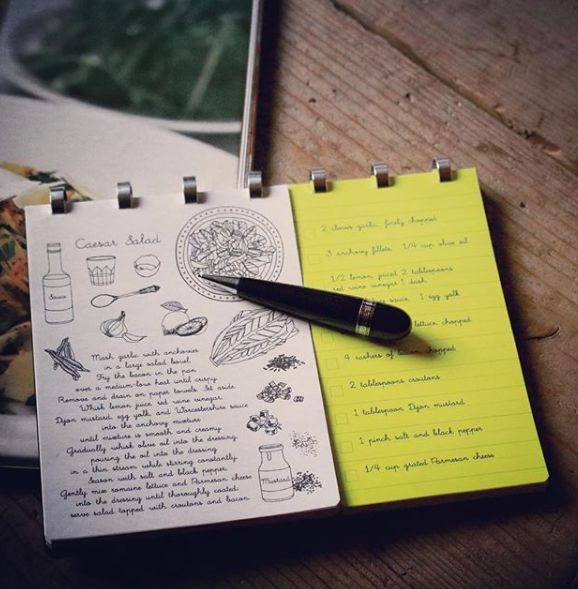 Caesar Salad
Sauce
Mash garlic with anchovies
in a large salad bowl.
Fry the bacon in the pan
over a medium-low heat until crispy.
Remove and drain on paper towels. Set aside.
Whisk lemon juice red wine vinegar.
Dijon mustard, egg yolk, and Worcestershire sauce
into the anchovy mixture
until mixture is smooth and creamy.
Gradually whisk olive oil into the dressing.
pouring the oil into the dressing
in a thin stream while stirring constantly.
Season with salt and black pepper.
Gently mix romaine lettuce and Parmesan cheese
into the dressing until thoroughly coated.
serve salad topped with croutons and bacon.
Mustard
2 cloves garlic, finely chopped
3 anchovy fillets 1/4 cup olive oil
1/2 lemon, juiced 2 tablespoons
red wine vinegar 1 dash
sauce 1 egg yolk
lettuce chopped
4 rashers of chopped
2 tablespoons croutons
1 tablespoon Dijon mustard
1 pinch salt and black pepper
1/4 cup grated Parmesan cheese